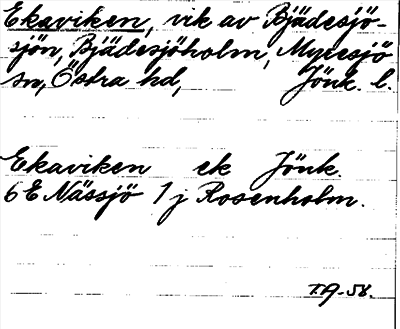 Ekaviken, vik av Bjädesjö-
sjön, Bjädesjöholm, Myresjö
sn, Östra hd, Jönk. l.
Ekaviken ek Jönk.
6E Nässjö 1j Rosenholm.
T.A-58.